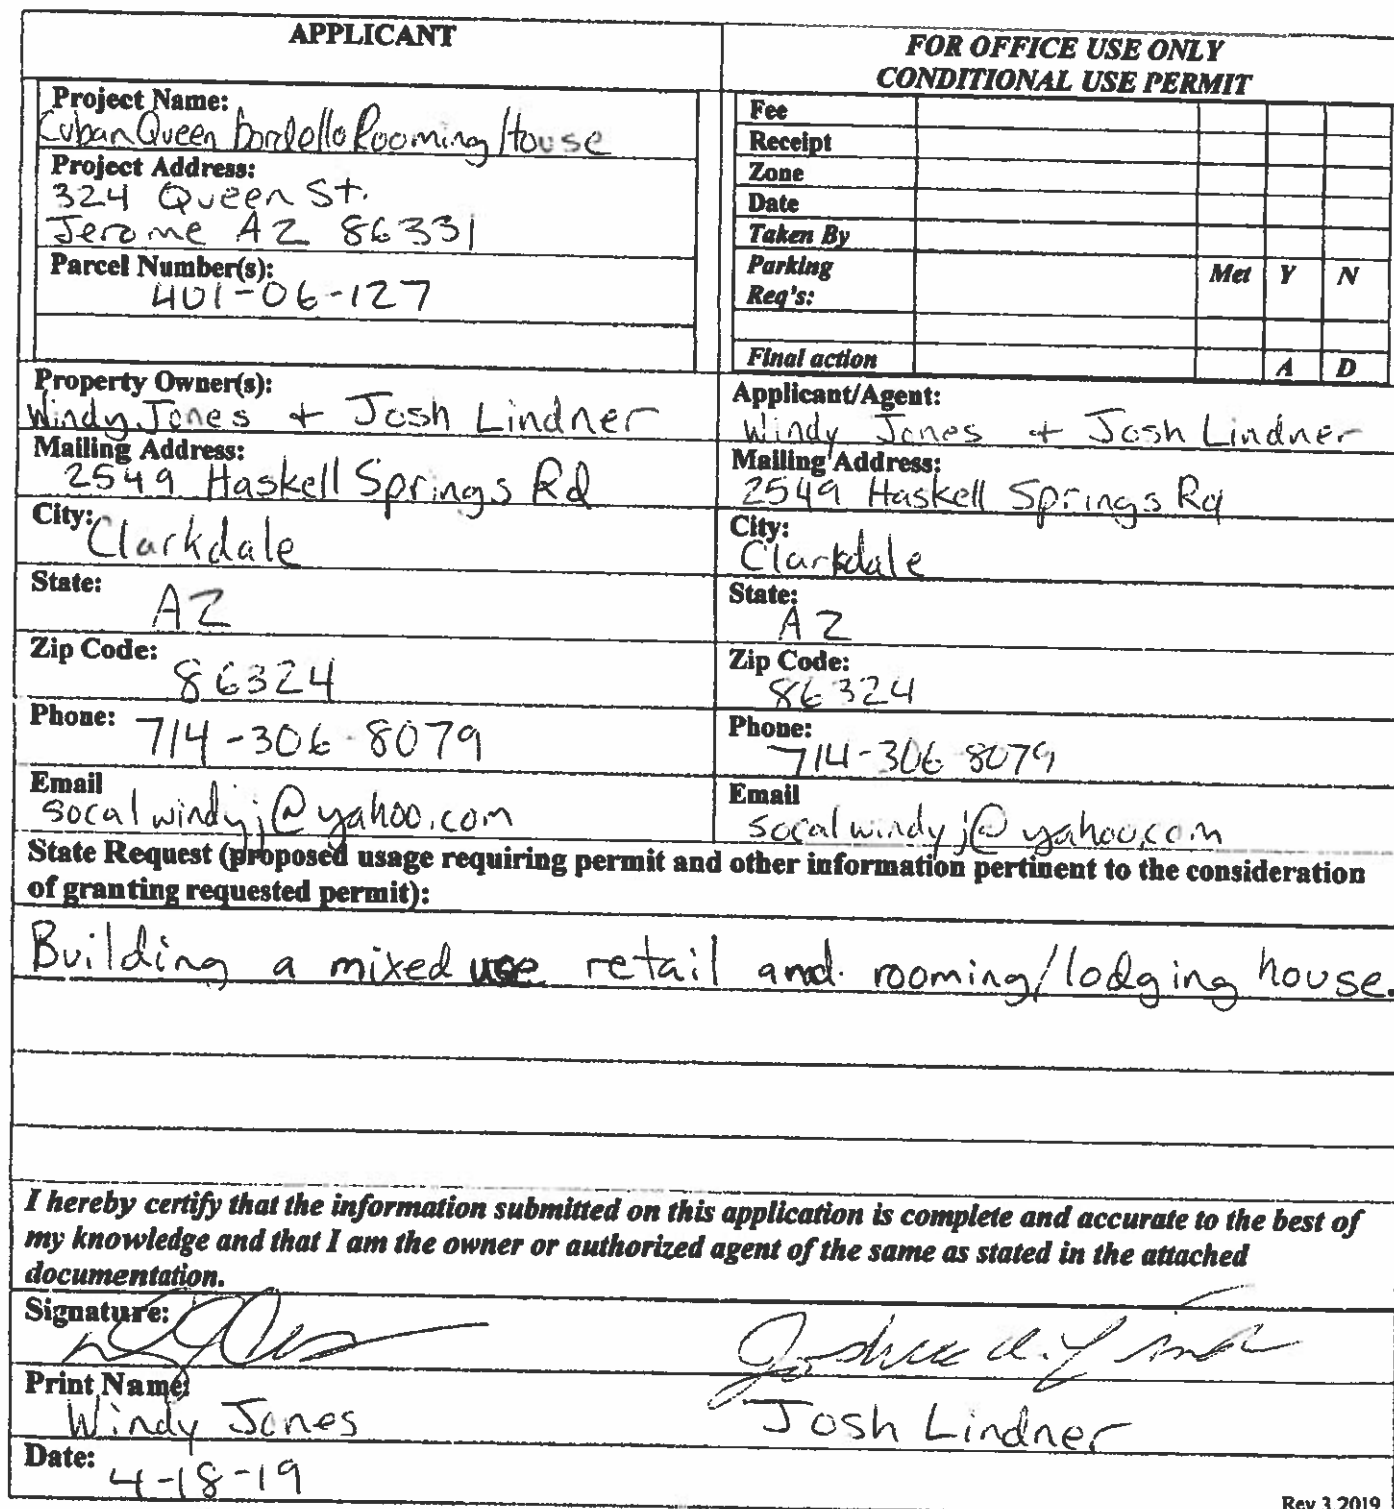 APPLICANT
Project Name:
Cuban Queen Bordello Rooming House
Project Address:
324 Queen St.
Jerome AZ 86331
Parcel Number(s):
401-06-127
FOR OFFICE USE ONLY
CONDITIONAL USE PERMIT
Fee
Receipt
Zone
Date
Taken By
Parking Met Y N
Req's:
Final action A D
Property Owner(s):
Windy Jones + Josh Lindner
Mailing Address:
2549 Haskell Springs Rd
City: Clarkdale
State: AZ
Zip Code: 86324
Phone: 714-306-8079
Email
socalwindyj@yahoo.com
Applicant/Agent:
Windy Jones + Josh Lindner
Mailing Address:
2549 Haskell Springs Rd
City:
Clarkdale
State:
AZ
Zip Code:
86324
Phone:
714-306-8079
Email
socalwindyj@yahoo.com
State Request (proposed usage requiring permit and other information pertinent to the consideration
of granting requested permit):
Building a mixed use retail and rooming/lodging house.
I hereby certify that the information submitted on this application is complete and accurate to the best of
my knowledge and that I am the owner or authorized agent of the same as stated in the attached
documentation.
Signature:
Print Name:
Windy Jones Josh Lindner
Date: 4-18-19
Rev 3 2019